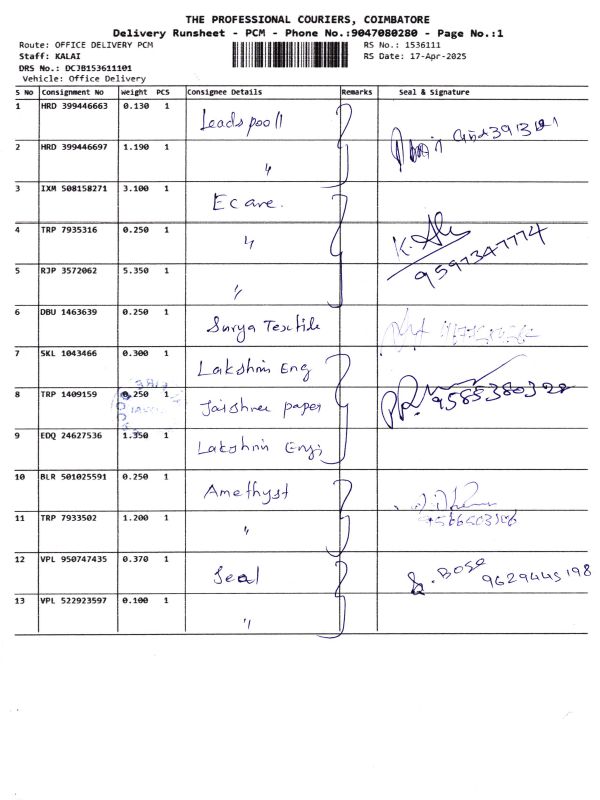 THE PROFESSIONAL COURIERS, COIMBATORE
Delivery Runsheet - PCM - Phone No.:9047080280 - Page No.:1
Route: OFFICE DELIVERY PCM
RS No.: 1536111
Staff: KALAI
RS Date: 17-Apr-2025
DRS No.: DCJB153611101
Vehicle: Office Delivery
S No Consignment No Weight PCS Consignee Details Remarks Seal & Signature
1 HRD 399446663 0.130 1 Leadspooll
2 HRD 399446697 1.190 1 〃
3 IXM 508158271 3.100 1 Ecare.
4 TRP 7935316 0.250 1 〃 K.
9597347774
5 RJP 3572062 5.350 1 〃
6 DBU 1463639 0.250 1 Surya Textile
7 SKL 1043466 0.300 1 Lakshmi Eng
8 TRP 1409159 0.250 1 Jaishree paper 9585380328
9 EDQ 24627536 1.350 1 Lakshmi Engi
10 BLR 501025591 0.250 1 Amethyst
11 TRP 7933502 1.200 1 〃
12 VPL 950747435 0.370 1 Seal Bose 9629445198
13 VPL 522923597 0.100 1 〃